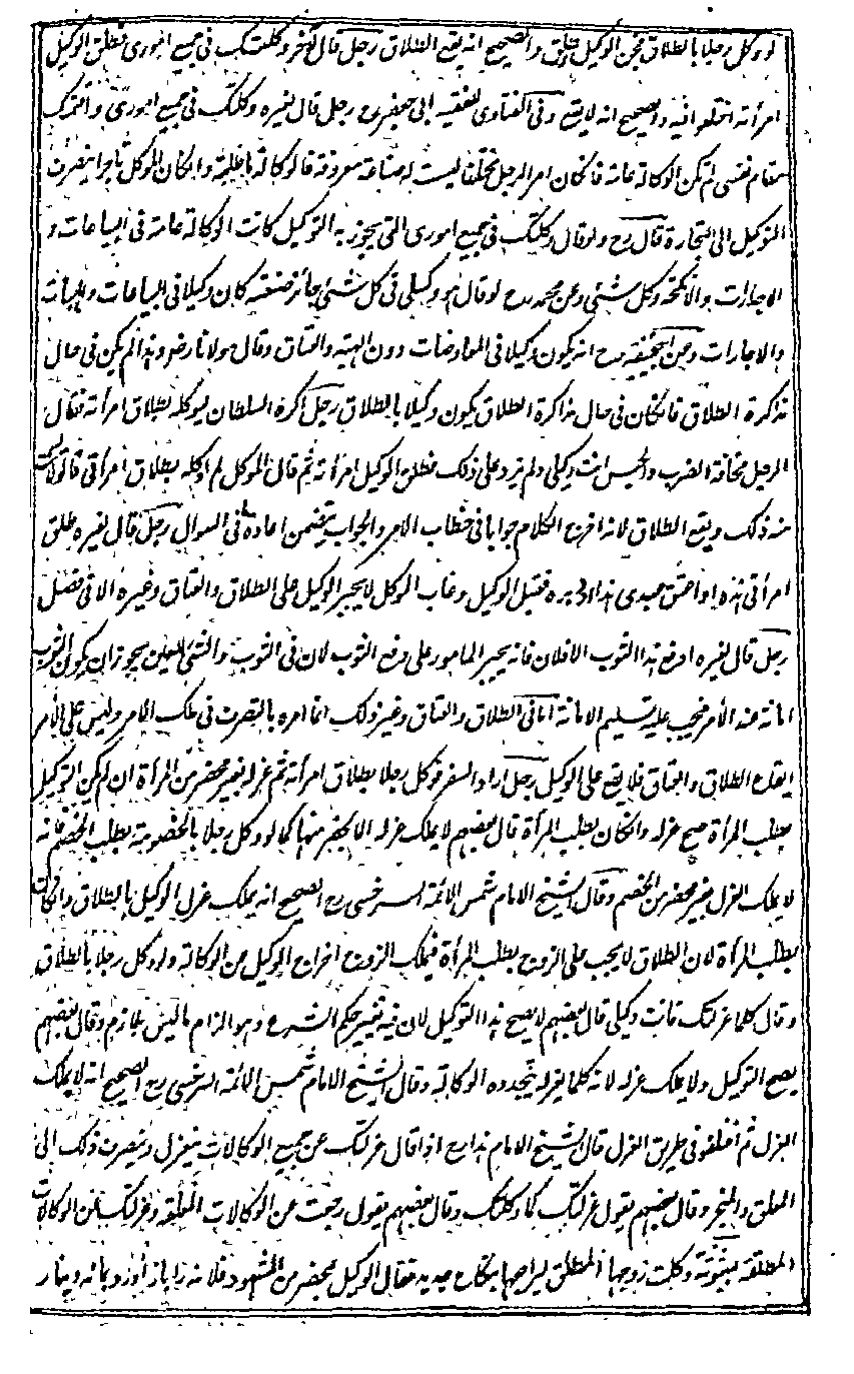 لو وكل رجلا بالطلاق فجن الوكيل وطلق والصحيح انه يقع الطلاق رجل قال لآخر وكلتك في جميع اموري فطلق الوكيل
امرأته اختلفوا فيه والصحيح انه لا يقع وفي الفتاوى للفقيه ابي جعفر رح رجل قال لغيره وكلتك في جميع اموري واقمتك
مقام نفسي لم تكن الوكالة عامة فان كان امر الرجل مختلفا ليست له صناعة معروفة فالوكالة باطلة وان كان الموكل تاجرا ينصرف
التوكيل الى التجارة قال رح ولو قال وكلتك في جميع اموري التي يجوز به التوكيل كانت الوكالة عامة في البياعات و
الاجارات والانكحة وكل شئ وعن محمد رح لو قال هو وكيلي في كل شئ جائز صنعته كان وكيلا في البياعات والهبات
والاجارات وعن ابي حنيفة رح انه يكون وكيلا في المعاوضات دون الهبة والعتاق وقال مولانا رض وهذا لم يكن في حال
تذكرة الطلاق فان كان في حال مذاكرة الطلاق يكون وكيلا بالطلاق رجل اكره السلطان ليوكله بطلاق امرأته فقال
الرجل مخافة الضرب والحبس انت وكيلي ولم يزد على ذلك فطلق الوكيل امرأته ثم قال الموكل لم اوكله بطلاق امرأتي قالوا لا يسمع
منه ذلك ويقع الطلاق لانه اخرج الكلام جوابا في خطاب الامر والجواب يتضمن اعادة ما في السوال رجل قال لغيره طلق
امرأتي هذه او اعتق عبدي هذا او دبره فقبل الوكيل وغاب الموكل لا يجبر الوكيل على الطلاق والعتاق وغيره الا في فصل
رجل قال لغيره ادفع هذا الثوب الا فلان فانه يجبر المامور على دفع الثوب لان في الثوب والشئ المعين يجوز ان يكون الثوب
امانة عند الآمر فيجب عليه تسليم الامانة اما في الطلاق والعتاق وغير ذلك انما امره بالتصرف في ملك الآمر وليس على الآمر
ايقاع الطلاق والعتاق فلا يقع على الوكيل رجل اراد السفر فوكل رجلا بطلاق امرأته ثم عزله بغير محضر من المرأة ان لم يكن التوكيل
بطلب المرأة صح عزله وان كان بطلب المرأة قال بعضهم لا يملك عزله الا بمحضر منها كما لو وكل رجلا بالخصومة بطلب الخصم فانه
لا يملك العزل بغير محضر من الخصم وقال الشيخ الامام شمس الائمة السرخسي رح الصحيح انه يملك عزل الوكيل بالطلاق وان كان
بطلب المرأة لان الطلاق لا يجب على الزوج بطلب المرأة فيملك الزوج اخراج الوكيل من الوكالة ولو وكل رجلا بالطلاق
وقال كلما عزلتك فانت وكيلي قال بعضهم لا يصح هذا التوكيل لان فيه تغيير حكم الشرع وهو الزام ما ليس بلازم وقال بعضهم
يصح التوكيل ولا يملك عزله لانه كلما يعزله يتجدد له الوكالة وقال الشيخ الامام شمس الائمة السرخسي رح الصحيح انه لا يملك
العزل ثم اختلفوا في طريق العزل قال الشيخ الامام هذا رح اذا قال عزلتك عن جميع الوكالات ينعزل وينصرف ذلك الى
المعلق والمنجز وقال بعضهم يقول عزلتك كما وكلتك وقال بعضهم يقول رجعت عن الوكالات المعلقة وعزلتك عن الوكالات
المطلقة مبتوتة وكلت زوجها المطلق ليراجعها بنكاح جديد فقال الوكيل بمحضر من الشهود فلانه را باز آوردم بمائة دينار